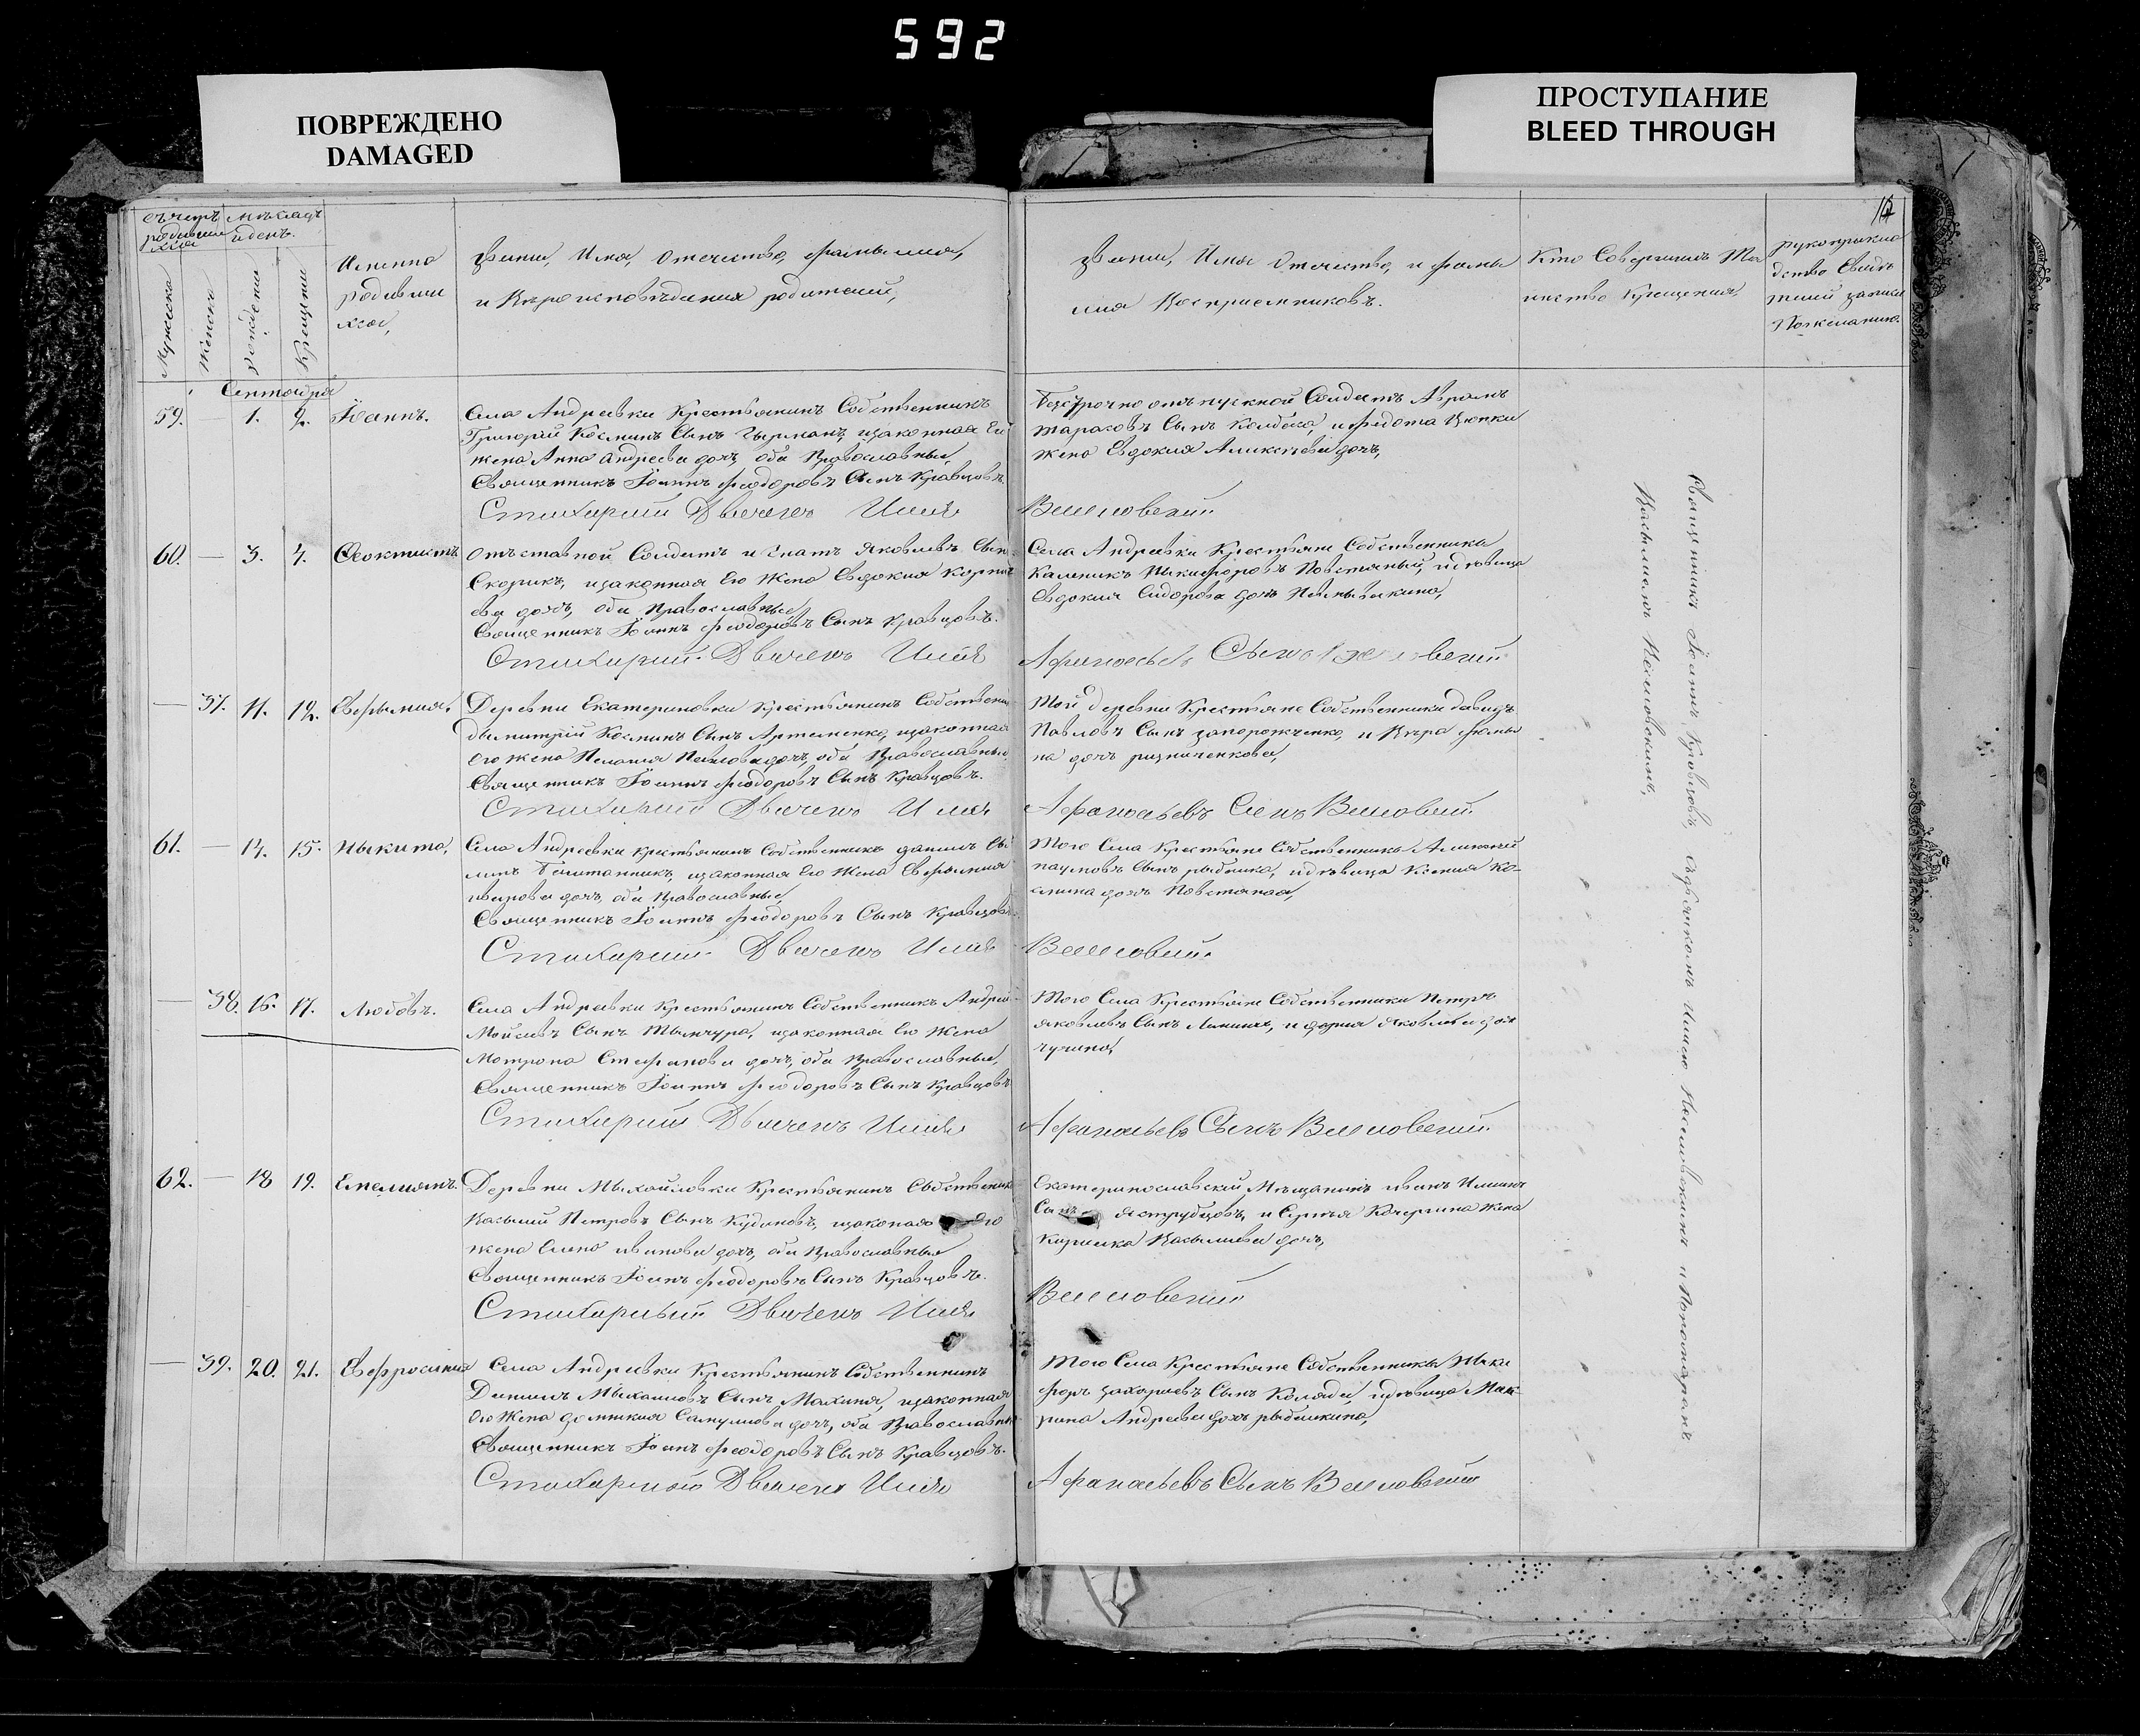 592
ПОВРЕЖДЕНО
DAMAGED
ПРОСТУПАНИЕ
BLEED THROUGH
Счетъ родившихся
Мѣсяцъ и день.
Мужеска
Женска
Рожденія
Крещенія
Имена
родивши
хся,
Званіе, Имя, Отечество, Фамылия,
и Вѣроисповѣдания родителей,
Званіе, Имя Отечество, и Фамы
лия Восприемниковъ.
Кто Совершилъ Та
инство Крещения,
рукоприкла
дство Свидѣ
телей записи
По желанию.
Сентабря
59. 1. 2. Іоаннъ.
Села Андреевки Крестьянинъ Собственникъ
Григорій Косминъ Сынъ
жена Анна Андреева дочь, оба Православные
Священникъ Іоаннъ Феодоровъ Сынъ Кравцовъ
Стихарный Дьячекъ Илія
Безсрочно отпускной Солдатъ Аврамъ
Тарасовъ Сынъ и Федота
жена Евдокия Алексеева дочь,
60. — 3. 4. Феоктистъ
Отъставной Солдатъ Игнатъ Яковлевъ Сынъ
Скорикъ, изаконная Его Жена Евдокия Корни
ева дочь, оба Православные
Священникъ Іоаннъ Феодоровъ Сынъ Кравцовъ.
Стихарный Дьячекъ Илія
Села Андреевки Крестьяне Собственники
Каленикъ Никифоровъ Повстяный, идѣвица
Евдокия Сидорова дочь
Афанасьевъ Сынъ
— 37. 11. 12. Евфымия,
Деревни Екатериновки Крестьянинъ Собственни
Дымитрій Косминъ Сынъ Артеменко, изаконная
Его жена Пелагия Павлова дочь, оба Православные
Священникъ Іоаннъ Феодоровъ Сынъ Кравцовъ.
Стихарный Дьячекъ Илія
Той деревни Крестьяне Собственники Давидъ
Павловъ Сынъ Запорожченко, и Вѣра Фомы
на дочь ризниченкова,
Афанасьевъ Сынъ
61. — 14. 15. Ныкита,
Села Андреевки Крестьянинъ Собственникъ Данилъ
Баштанникъ, изаконная Его Жена Евфымия
иванова дочь, оба Православные,
Священникъ Іоаннъ Феодоровъ Сынъ Кравцовъ
Стихарный Дьячекъ Илія
Того Села Крестьяне Собственники Алексей
наумовъ Сынъ рыбалка, идѣвица Ксения Ко-
смина дочь Повстяная,
— 38. 16. 17. Любовь.
Села Андреевки Крестьянинъ Собственникъ Андрей
Моисеевъ Сынъ Тымчура, изаконная Его Жена
Матрона Стефанова дочь, оба Православные,
Священникъ Іоаннъ Феодоровъ Сынъ Кравцовъ
Стихарный Дьячекъ Илія
Того Села Крестьяне Собственники Петръ
Яковлевъ Сынъ и Дария Яковлева дочь
Афанасьевъ Сынъ
62. — 18 19. Емелиянъ.
Деревни Мыхайловки Крестьянинъ Собственникъ
Васылий Петровъ Сынъ Кудиновъ, изаконная Его
жена Елена иванова дочь, оба Православные
Священникъ Іоаннъ Феодоровъ Сынъ Кравцовъ.
Стихарный Дьячекъ Илія
Екатеринославский Мѣщанинъ иванъ Илиинъ
Сынъ Ястребцовъ, и Сергея Кочергина жена
Васылиева дочь,
— 39. 20. 21. Евфросиния
Села Андреевки Крестьянинъ Собственникъ
Данилъ Мыхаиловъ Сынъ Махиня, изаконная
Его Жена домникия Самуилова дочь, оба Православные
Священникъ Іоаннъ Феодоровъ Сынъ Кравцовъ.
Стихарный Дьячекъ Илія
Того Села Крестьяне Собственники Ныки
форъ захариевъ Сынъ Коляда, идѣвица Мак-
рина Андреева дочь рыбалкина,
Афанасьевъ Сынъ
Священникъ Іоаннъ Кравцовъ Съдьячкомъ Илиею и Пономаремъ
Васылиемъ